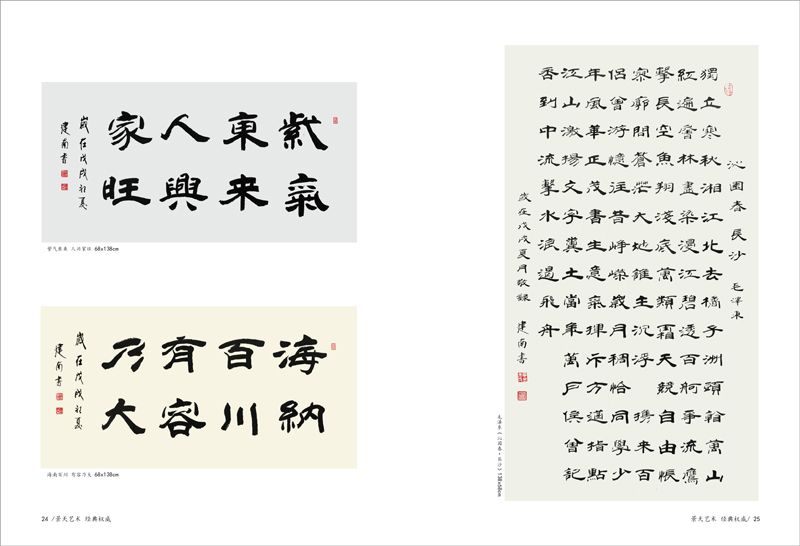 紫氣
東来
人興
家旺
歲在戊戌初夏
建南書
紫气东来 人兴家旺 68x138cm
海納
百川
有容
乃大
歲在戊戌初夏
建南書
海南百川 有容乃大 68x138cm
24 /景天艺术 经典权威
沁園春 長沙 毛澤東
獨立寒秋湘江北去橘子洲頭看萬山
紅遍層林盡染漫江碧透百舸爭流鷹
擊長空魚翔淺底萬類霜天競自由悵
寥廓問蒼茫大地誰主沉浮 攜来百
侣曾游憶往昔崢嶸歲月稠恰同學少
年風華正茂書生意氣揮斥方遒指點
江山激揚文字糞土當年萬戶侯曾記
否到中流擊水浪遏飛舟
歲在戊戌夏月敬録 建南書
毛泽东《沁园春·长沙》138x68cm
景天艺术 经典权威/ 25